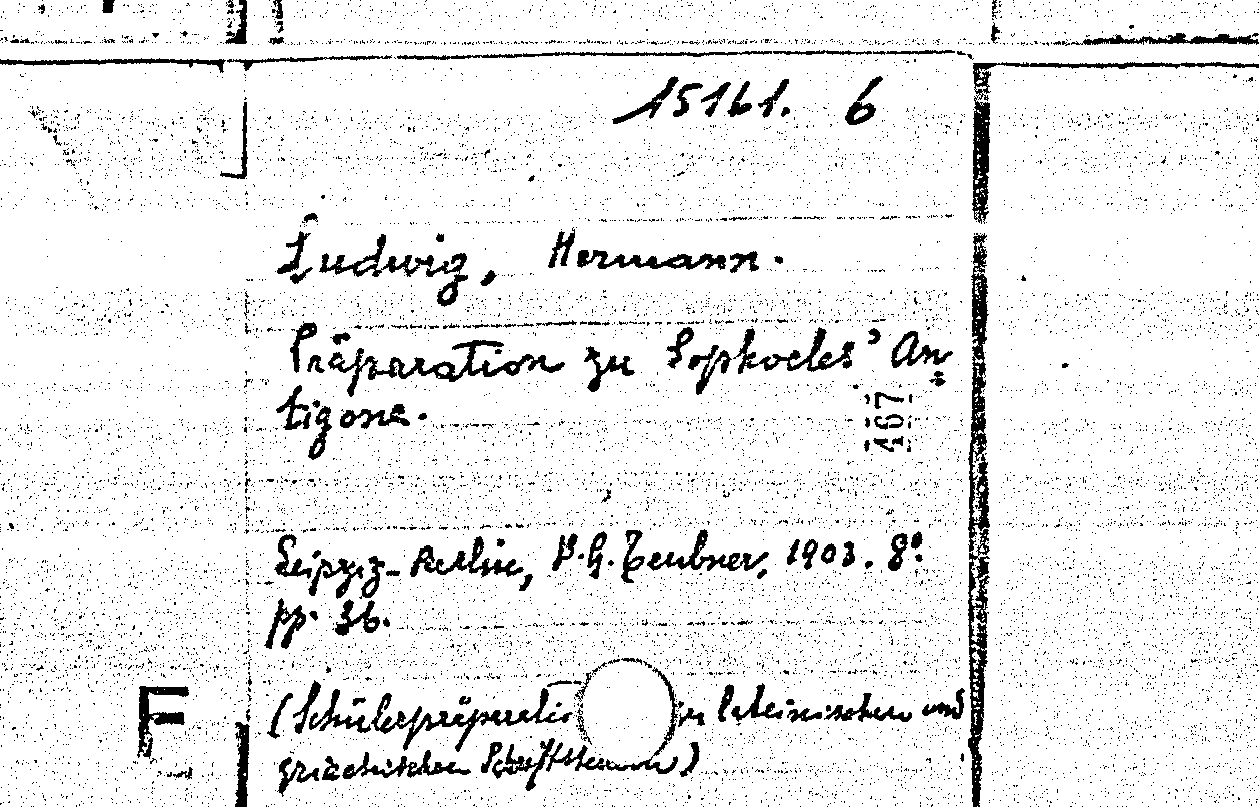 15161. 6
Ludwig, Hermann.
Präparation zu Sophocles' An=
tigone.
467
Leipzig-Berlin, B.G. Teubner, 1903. 8°.
pp. 36.
(Schülerpräparatio lateinischen und
griechischen Schriftstellern)
F